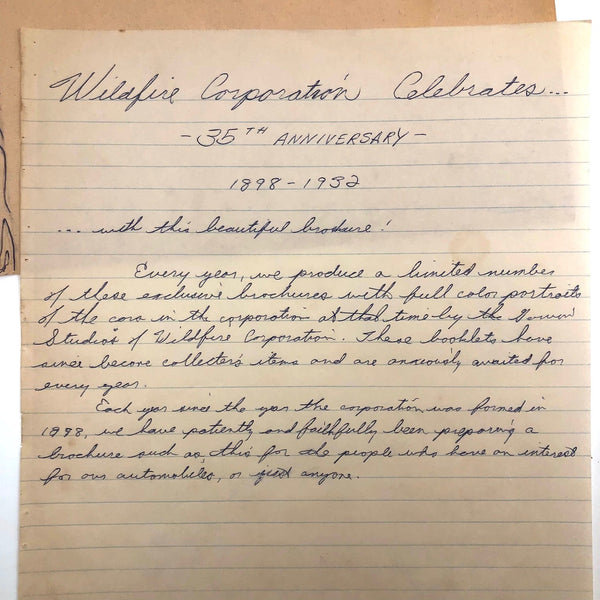 Wildfire Corporation Celebrates...
- 35TH ANNIVERSARY -
1898 - 1932
... with this beautiful brochure!
Every year, we produce a limited number
of these exclusive brochures with full color portraits
of the cars in the corporation at that time by the
Studios of Wildfire Corporation. These booklets have
since become collector's items and are anxiously awaited for
every year.
Each year since the year the corporation was formed in
1898, we have patiently and faithfully been preparing a
brochure such as this for the people who have an interest
for our automobiles, or just anyone.